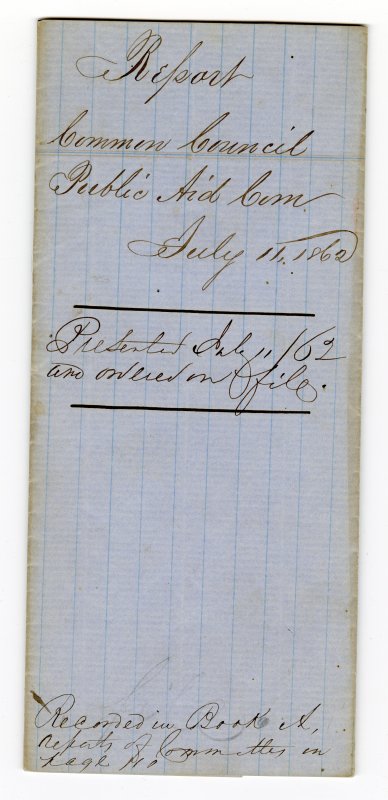 Report
Common Council
Public Aid Com
July 11. 1862
Presented July 11/62
and ordered on file.
Recorded in Book A,
reports of Committees on
page No